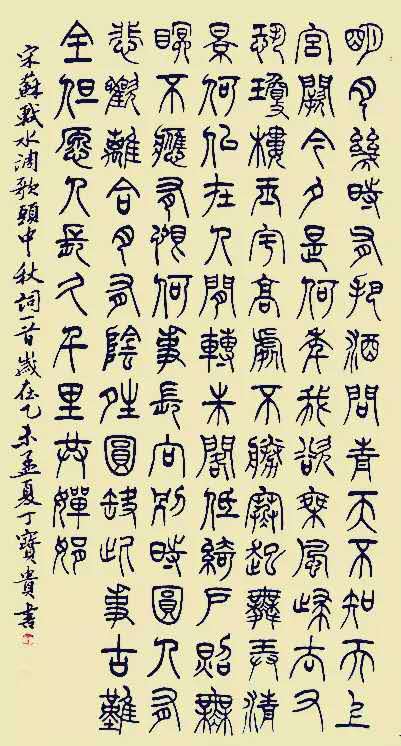 明月幾時有把酒問青天不知天上
宮闕今夕是何年我欲乘風歸去又
恐瓊樓玉宇高處不勝寒起舞弄清
景何似在人間轉朱閣低綺戶照無
眠不應有恨何事長向別時圓人有
悲歡離合月有陰晴圓缺此事古難
全但願人長久千里共嬋娟
宋蘇軾水調歌頭中秋詞一首歲在乙未孟夏丁寶貴書